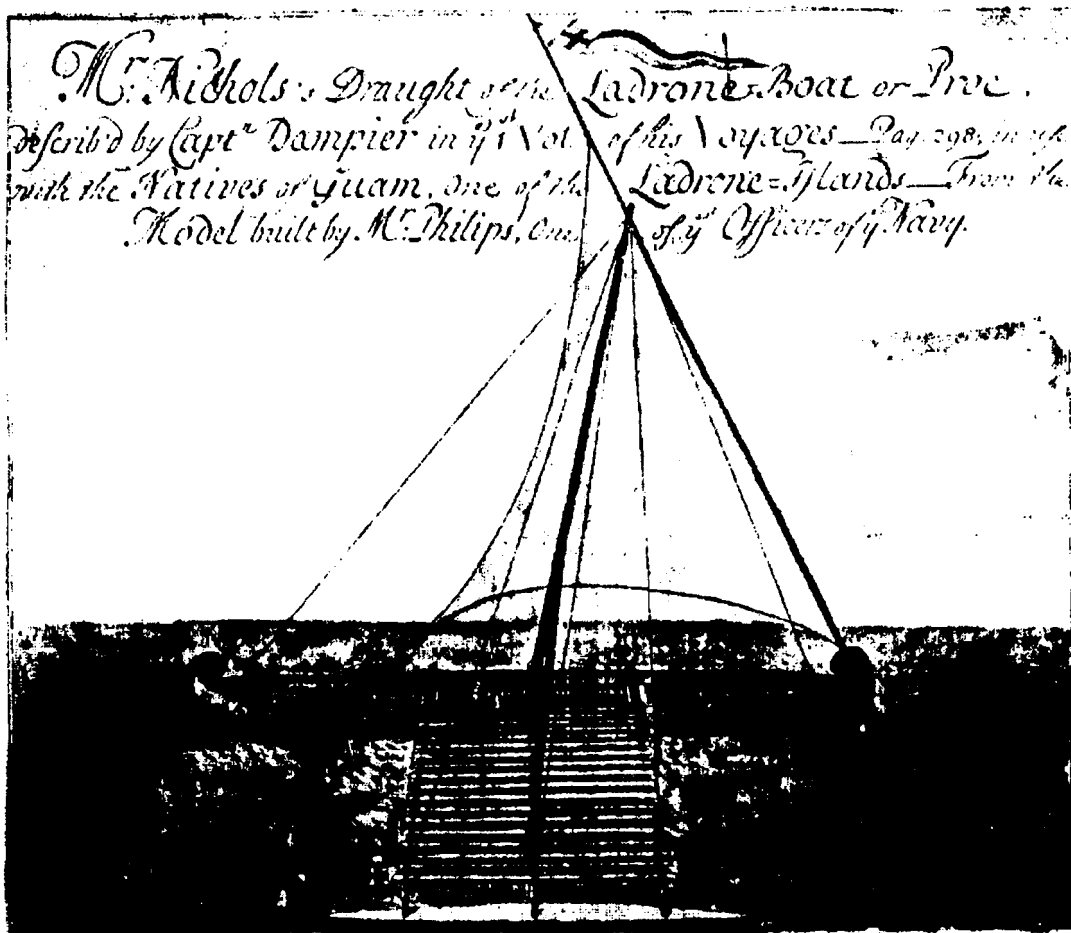 Mr. Nichols's Draught of the Ladrone=Boat or Proe.
describ'd by Captn Dampier in ye 1st Vol. of his Voyages — Pag. 298. in use
with the Natives of Guam, one of the Ladrone=Islands — From the
Model built by Mr. Philips, One of ye Officers of ye Navy.